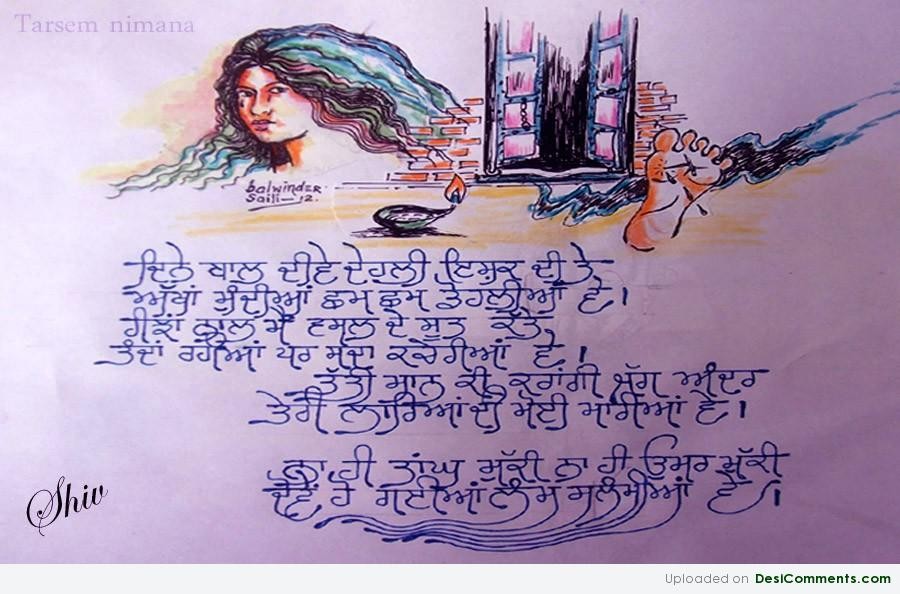 Tarsem nimana
balwinder
Saili-12.
ਦਿਨੇ ਬਾਲ ਦੀਵੇ ਦੇਹਲੀ ਇਸ਼ਕ ਦੀ ਤੇ
ਅੱਖਾਂ ਮੁੰਦੀਆਂ ਛਮ ਛਮ ਡੋਹਲੀਆਂ ਵੇ।
ਰੀਝਾਂ ਨਾਲ ਮੈਂ ਵਸਲ ਦੇ ਸੂਤ ਕੱਤੇ
ਤੰਦਾਂ ਰਹੀਆਂ ਪਰ ਸਦਾ ਕਚੇਰੀਆਂ ਵੇ।
ਤੱਤੀ ਮਾਨ ਕੀ ਕਰਾਂਗੀ ਜੱਗ ਅੰਦਰ
ਤੇਰੀ ਲਾਰਿਆਂ ਦੀ ਮੋਈ ਮਾਰੀਆਂ ਵੇ।
ਨਾ ਹੀ ਤਾਂਘ ਮੁੱਕੀ ਨਾ ਹੀ ਉਮਰ ਮੁੱਕੀ
ਦੋਵੇਂ ਹੋ ਗਈਆਂ ਲੰਮ ਸਲੰਮੀਆਂ ਵੇ।
Shiv
Uploaded on DesiComments.com